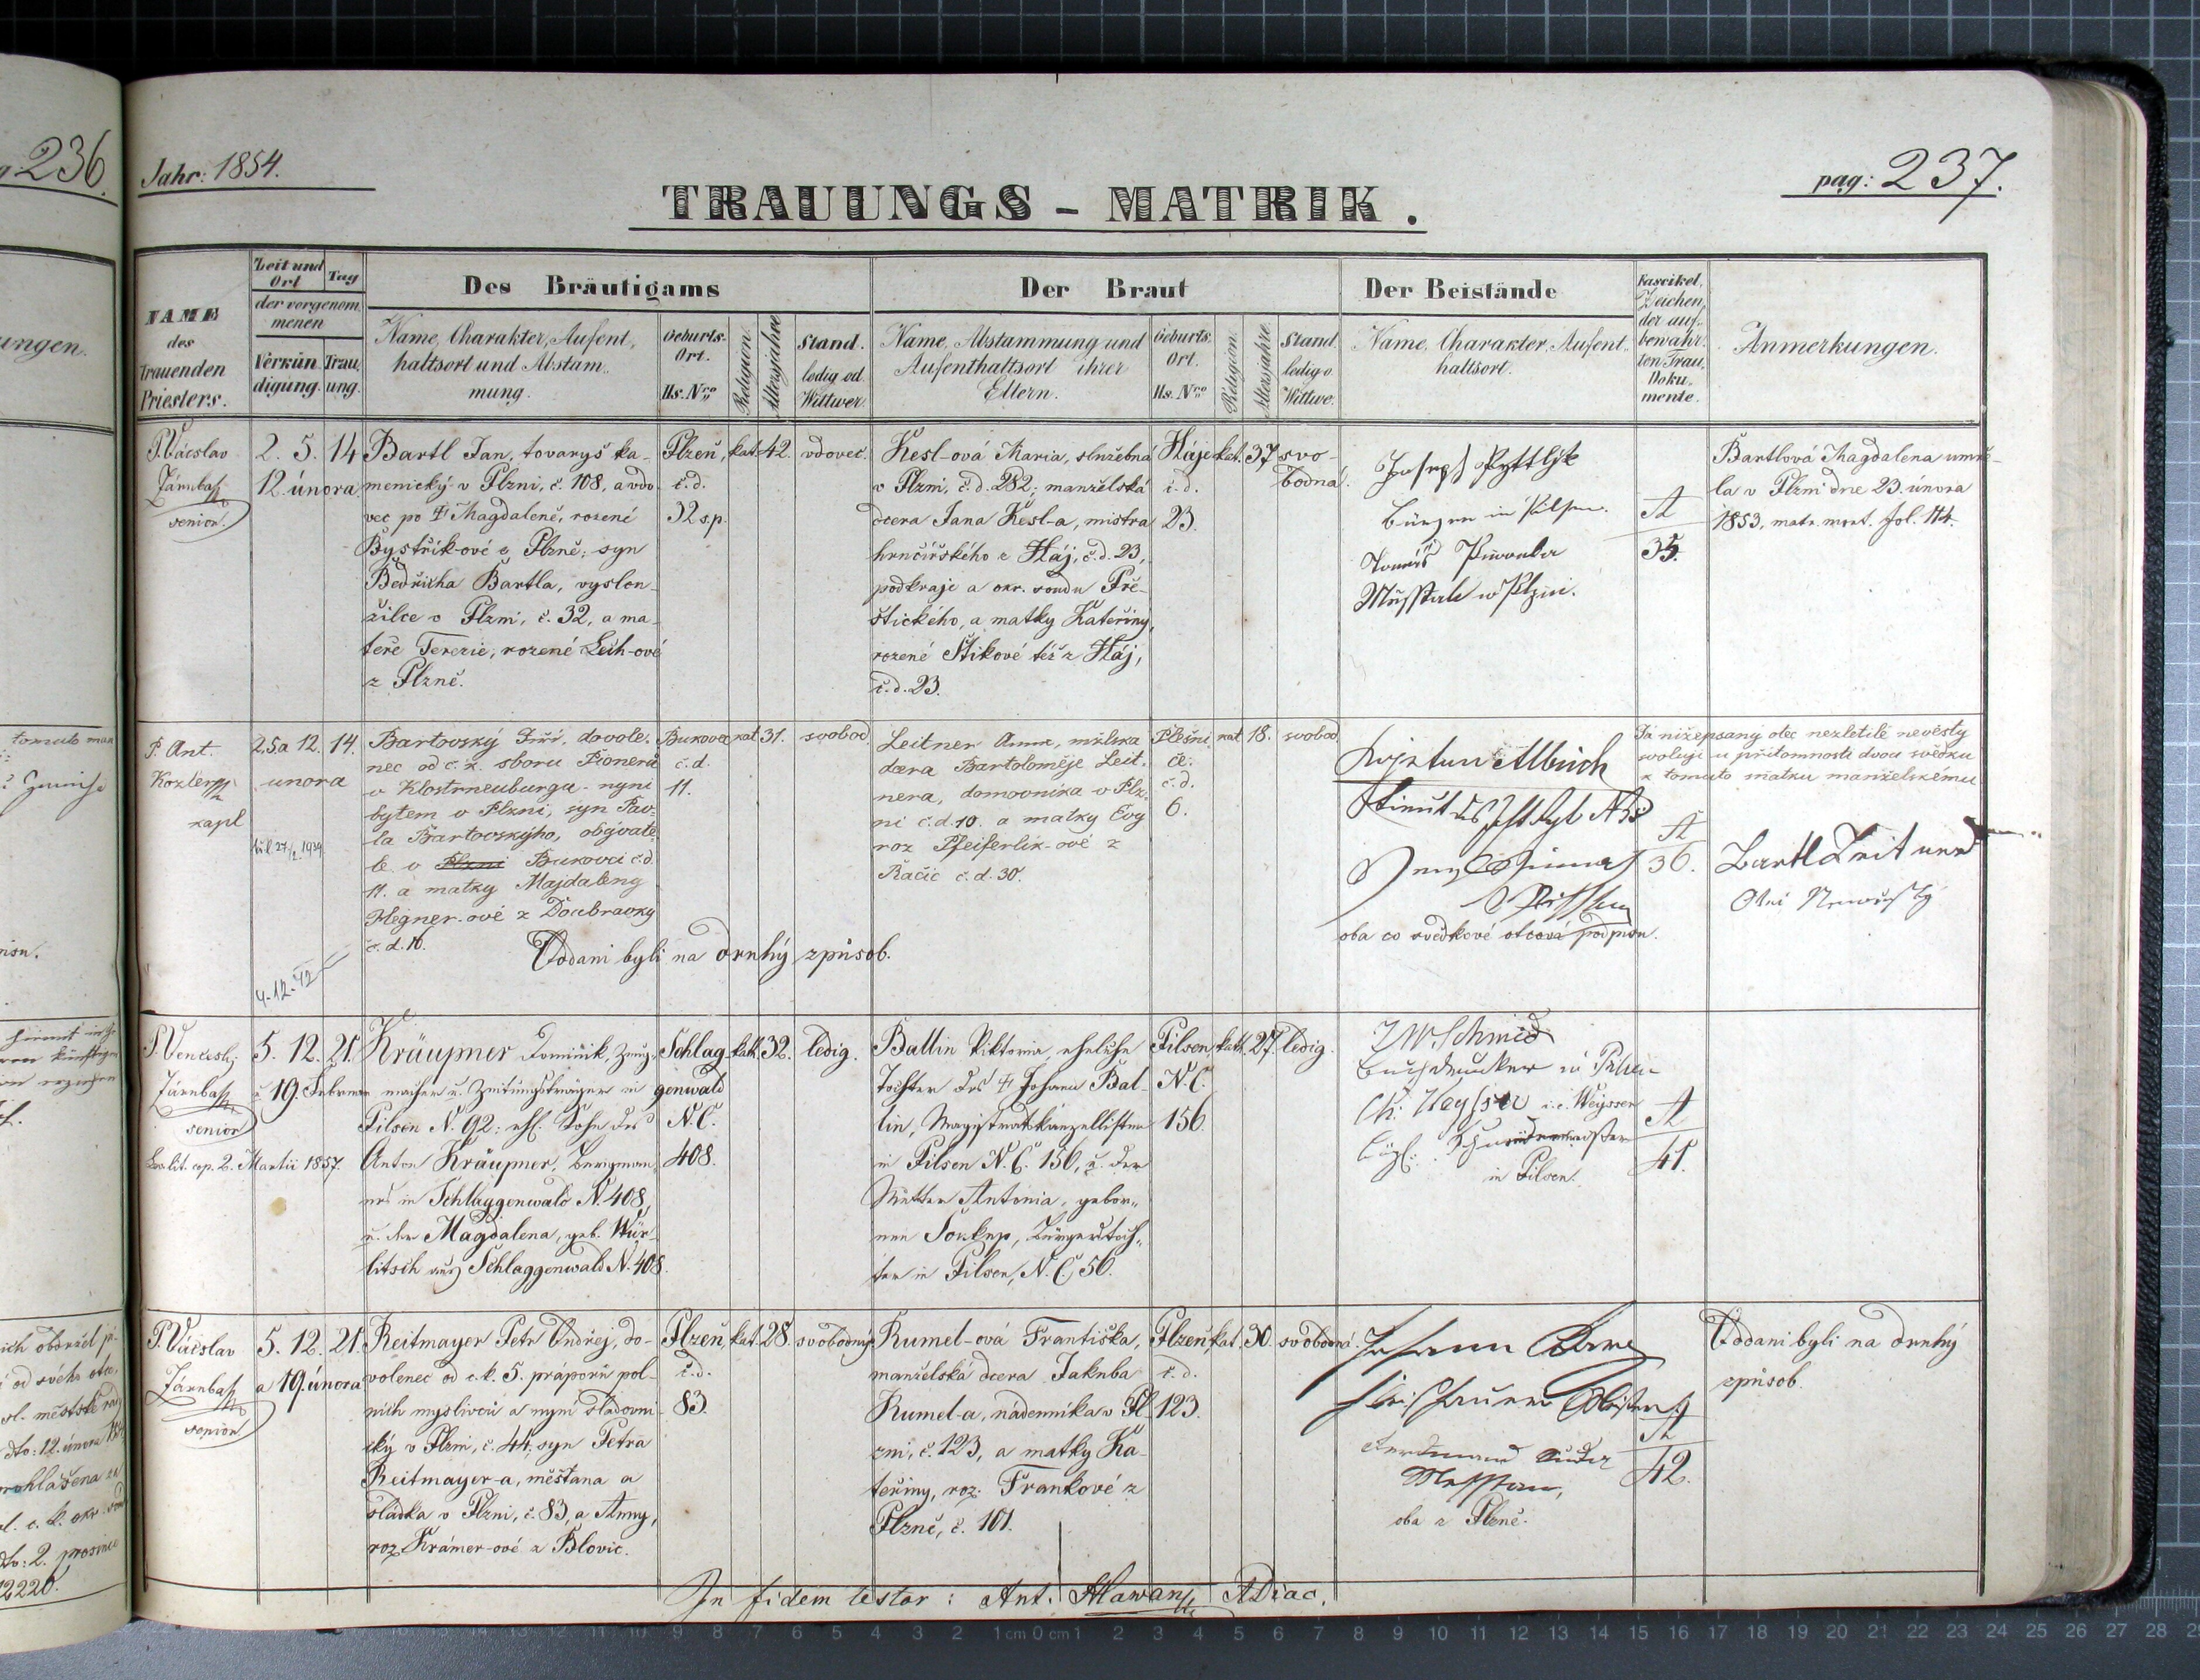 236.
Jahr: 1854.
pag: 237.
TRAUUNGS - MATRIK.
NAME
des
Trauenden
Priesters.
Zeit und
Ort
Tag
der vorgenom
menen
Verkün
digung.
Trau
ung.
Des Bräutigams
Name, Charakter, Aufent,
haltsort und Abstam
mung.
Geburts
Ort.
Hs. Nro
Religion.
Altersjahre
Stand.
ledig od.
Wittwer.
Der Braut
Name, Abstammung und
Aufenthaltsort ihrer
Eltern.
Geburts
Ort.
Hs. Nro
Religion.
Altersjahre.
Stand
ledig o
Wittwe.
Der Beistände
Name, Charakter, Aufent
haltsort.
Fascikel,
Zeichen,
der auf
bewahr
ten Trau,
Doku
mente.
Anmerkungen.
P. Vácslav
Járnbah
senior.
2. 5.
12. února.
14
Bartl Jan, tovaryš ka-
menický v Plzni, č. 108, a vdo
vec po † Magdaleně, rozené
Bystřík-ové z Plzně; syn
Bedřicha Bartla, vyslou-
žilce v Plzni, č. 32, a ma-
teře Terezie, rozené Leih-ové
z Plzně.
Plzeň,
č. d.
32 s.p.
kat.
42.
vdovec.
Kesl-ová Maria, služebná
v Plzni, č. d. 282; manželská
dcera Jana Kesl-a, mistra
hrnčířského z Háj, č. d. 23,
podkraje a okr. soudu Pře-
štického, a matky Kateřiny,
rozené Štikové též z Háj,
č. d. 23.
Háje
č. d.
23.
kat.
37
svo-
bodná.
Joseph
Bürger in Pilsen.
Tomáš
w Plzni.
A
35.
Bartlová Magdalena umř-
la v Plzni dne 23. února
1853, matr. mort. fol. 114.
P. Ant.
Kozler
kapl
2. 5. a 12.
unora
14.
4-12-42
Bartovský Jiří, dovole-
nec od c. k. sboru Pionerů
v Klostrneuburgu - nyní
bytem v Plzni, syn Pav-
la Bartovskýho, obývate-
le v Plzni Bukovci č. d
11. a matky Majdaleny
Hegner-ové z Doubravky
č. d. 16.
Oddani byli na druhý způsob.
Bukovec
č. d.
11.
kat
31.
svobod
Leitner Anna, mžlska
dcera Bartoloměje Leit-
nera, domovníka v Plz-
ni č. d. 10. a matky Evy
roz Pfeiferlík-ové z
Račic č. d. 30.
Plešni
ce.
č. d.
6.
kat
18.
svobod
Albrich
oba co svědkové otcová podpisu.
A
36.
Já nížepsaný otec nezletilé nevěsty
svoluji u přítomnosti dvou svědku
k tomuto sňatku manželskému
Bartl Leitner
P. Venzesl.
Járnbah
senior
Ex lit. cop. 2. Martii 1857.
5. 12.
u. 19. Februar
21.
Kräupner Dominik, Zeug-
macher u. Zeitungsträger in
Pilsen N. 92; ehl. Sohn des
Anton Kräupner, Bergman-
nes in Schlaggenwald N. 408,
u. der Magdalena, geb. Wür-
litsch aus Schlaggenwald N. 408.
Schlag
genwald
N. C.
408.
kath.
32.
ledig.
Ballin Viktoria, eheliche
Tochter des † Johann Bal-
lin, Magistratskanzellisten
in Pilsen N. C. 156, u. der
Mutter Antonia, gebor-
nen Soukup, Bürgerstoch-
ter in Pilsen, N. C. 56.
Pilsen
N. C.
156.
kath.
27.
ledig.
J W Schmid
Buchdrucker in Pilsen
i. e. Weyssen
in Pilsen.
A
41.
P. Vácslav
Járnbah
senior
5. 12.
a 19. února
21.
Reitmayer Petr Ondřej, do-
volenec od c. k. 5. práporu pol-
ních myslivců a nyní sladovni-
cký v Plzni, č. 44; syn Petra
Reitmayer-a, měšťana a
sládka v Plzni, č. 83, a Anny,
roz. Krámer-ové z Blovic.
Plzeň,
č. d.
83.
kat.
28.
svobodný
Rumel-ová Františka,
manželská dcera Jakuba
Rumel-a, nádenníka v Pl-
zni, č. 123, a matky Ka-
teřiny, roz. Frankové z
Plzně, č. 101.
Plzeň,
č. d.
123.
kat.
30.
svobodná.
Johann
Ferdinand
oba z Plzně.
A
42.
Oddani byli na druhý
způsob.
In fidem testor: Ant. Hlawan